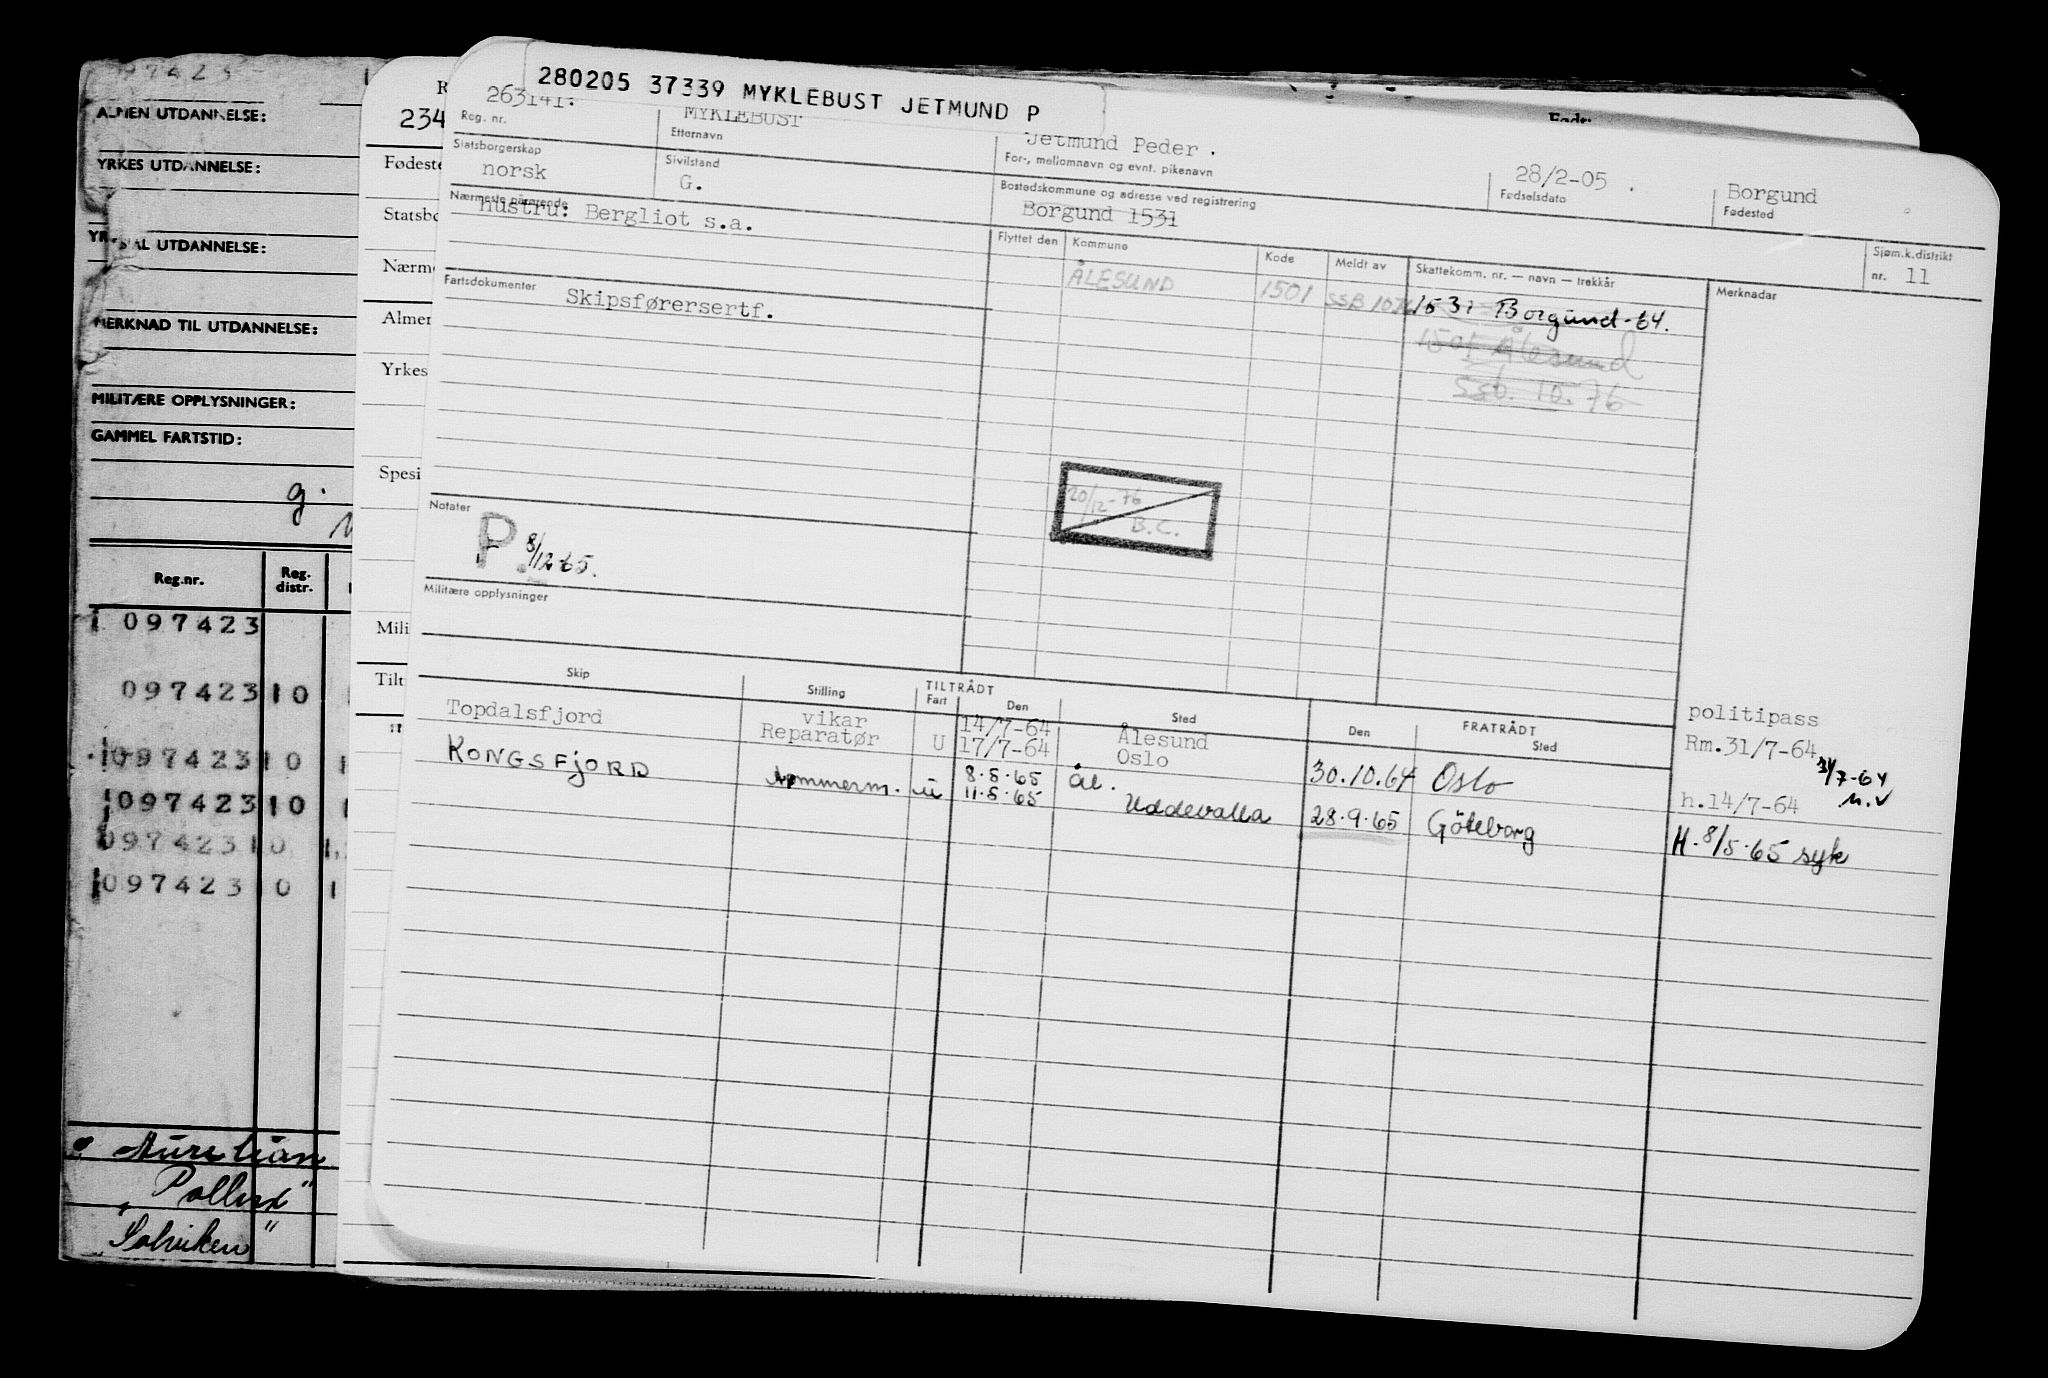 280205 37339 MYKLEBUST JETMUND P
263141.
MYKLEBUST
Jetmund Peder .
28/2-05 .
Borgund
Reg. nr.
Etternavn
For-, mellomnavn og evnt. pikenavn
Fødselsdato
Fødested
Statsborgerskap
norsk
Sivilstand
G.
Bostedskommune og adresse ved registrering
Borgund 1531
Sjøm.k.distrikt
nr. 11
Nærmeste pårørende
hustru: Bergliot s.a.
Flyttet den
Kommune
Kode
Meldt av
Skattekomm. nr. — navn — trekkår
Merknader
ÅLESUND
1501
SSB 1076
1531 Borgund-64.
1501 Ålesund
SSb. 10. 76
Fartsdokumenter
Skipsførersertf.
20/12-76
B.C.
Notater
P.
8/12-65.
Militære opplysninger
Skip
Stilling
TILTRÅDT
Fart
Den
Sted
Den
FRATRÅDT
Sted
Topdalsfjord
vikar
Reparatør
U
14/7-64
17/7-64
Ålesund
Oslo
30.10.64
Oslo
politipass
Rm.31/7-64
31/7-64
h.14/7-64
KONGSFJORD
ü
8.5.65
11.5.65
Ål.
Uddevalla
28.9.65
Göteborg
H. 8/5.65 syk
097423
ALMEN UTDANNELSE:
YRKES UTDANNELSE:
UTDANNELSE:
MERKNAD TIL UTDANNELSE:
MILITÆRE OPPLYSNINGER:
GAMMEL FARTSTID:
g.
Reg.nr.
Reg.
distr.
1 097423
097423 10
1097423 10 1
1097423 10 1
097423 10 1
1097423 10 1
Aurelian
"Pollux"
"Solviken"
R
234
Fødeste
Statsbo
Nærme
Almer
Yrkes
Spesi
Mili
Tilt
Født: